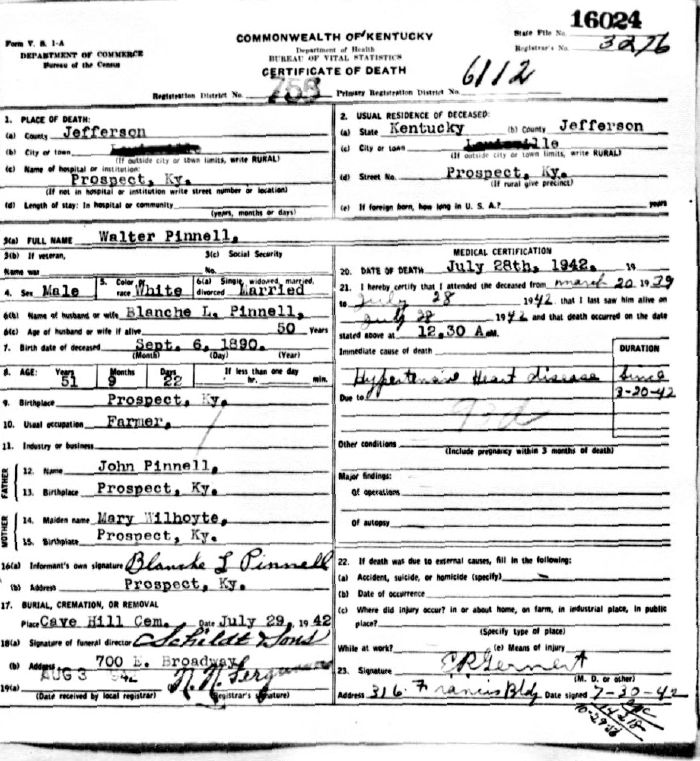 16024
Form V. S. 1-A
DEPARTMENT OF COMMERCE
Bureau of the Census
COMMONWEALTH OF KENTUCKY
Department of Health
BUREAU OF VITAL STATISTICS
CERTIFICATE OF DEATH
State File No.
Registrar's No. 3276
Registration District No. 755 Primary Registration District No. 6112
1. PLACE OF DEATH:
(a) County Jefferson
(b) City or town
(If outside city or town limits, write RURAL)
(c) Name of hospital or institution:
Prospect, Ky.
(If not in hospital or institution write street number or location)
(d) Length of stay: In hospital or community
(years, months or days)
2. USUAL RESIDENCE OF DECEASED:
(a) State Kentucky (b) County Jefferson
(c) City or town Louisville
(If outside city or town limits, write RURAL)
(d) Street No. Prospect, Ky.
(If rural give precinct)
(e) If foreign born, how long in U. S. A.? years
3(a) FULL NAME Walter Pinnell,
3(b) If veteran, 3(c) Social Security
Name war No.
4. Sex Male 5. Color or race White 6(a) Single, widowed, married, divorced Married
6(b) Name of husband or wife Blanche L. Pinnell,
6(c) Age of husband or wife if alive 50 Years
7. Birth date of deceased Sept. 6, 1890.
(Month) (Day) (Year)
8. AGE: Years Months Days If less than one day
51 9 22 hr. min.
9. Birthplace Prospect, Ky.
10. Usual occupation Farmer,
11. Industry or business
FATHER
12. Name John Pinnell,
13. Birthplace Prospect, Ky.
MOTHER
14. Maiden name Mary Wilhoyte,
15. Birthplace Prospect, Ky.
16(a) Informant's own signature Blanche L Pinnell
(b) Address Prospect, Ky.
17. BURIAL, CREMATION, OR REMOVAL
Place Cave Hill Cem. Date July 29, 1942
18(a) Signature of funeral director Schildt & Sons
(b) Address 700 E. Broadway
19(a) AUG 3 1942
(Date received by local registrar) (Registrar's signature)
MEDICAL CERTIFICATION
20. DATE OF DEATH July 28th, 1942. 19
21. I hereby certify that I attended the deceased from March 20 1939
to July 28 1942 that I last saw him alive on
July 28 1942 and that death occurred on the date
stated above at 12.30 A.M.
Immediate cause of death DURATION
Hypertensive Heart disease Since
Due to 3-20-42
Other conditions
(Include pregnancy within 3 months of death)
Major findings:
Of operations
Of autopsy
22. If death was due to external causes, fill in the following:
(a) Accident, suicide, or homicide (specify)
(b) Date of occurrence
(c) Where did injury occur? in or about home, on farm, in industrial place, in public
place?
(Specify type of place)
While at work? (e) Means of injury
23. Signature C.R. Gernert
(M. D. or other)
Address 316 Francis Bldg Date signed 7-30-42